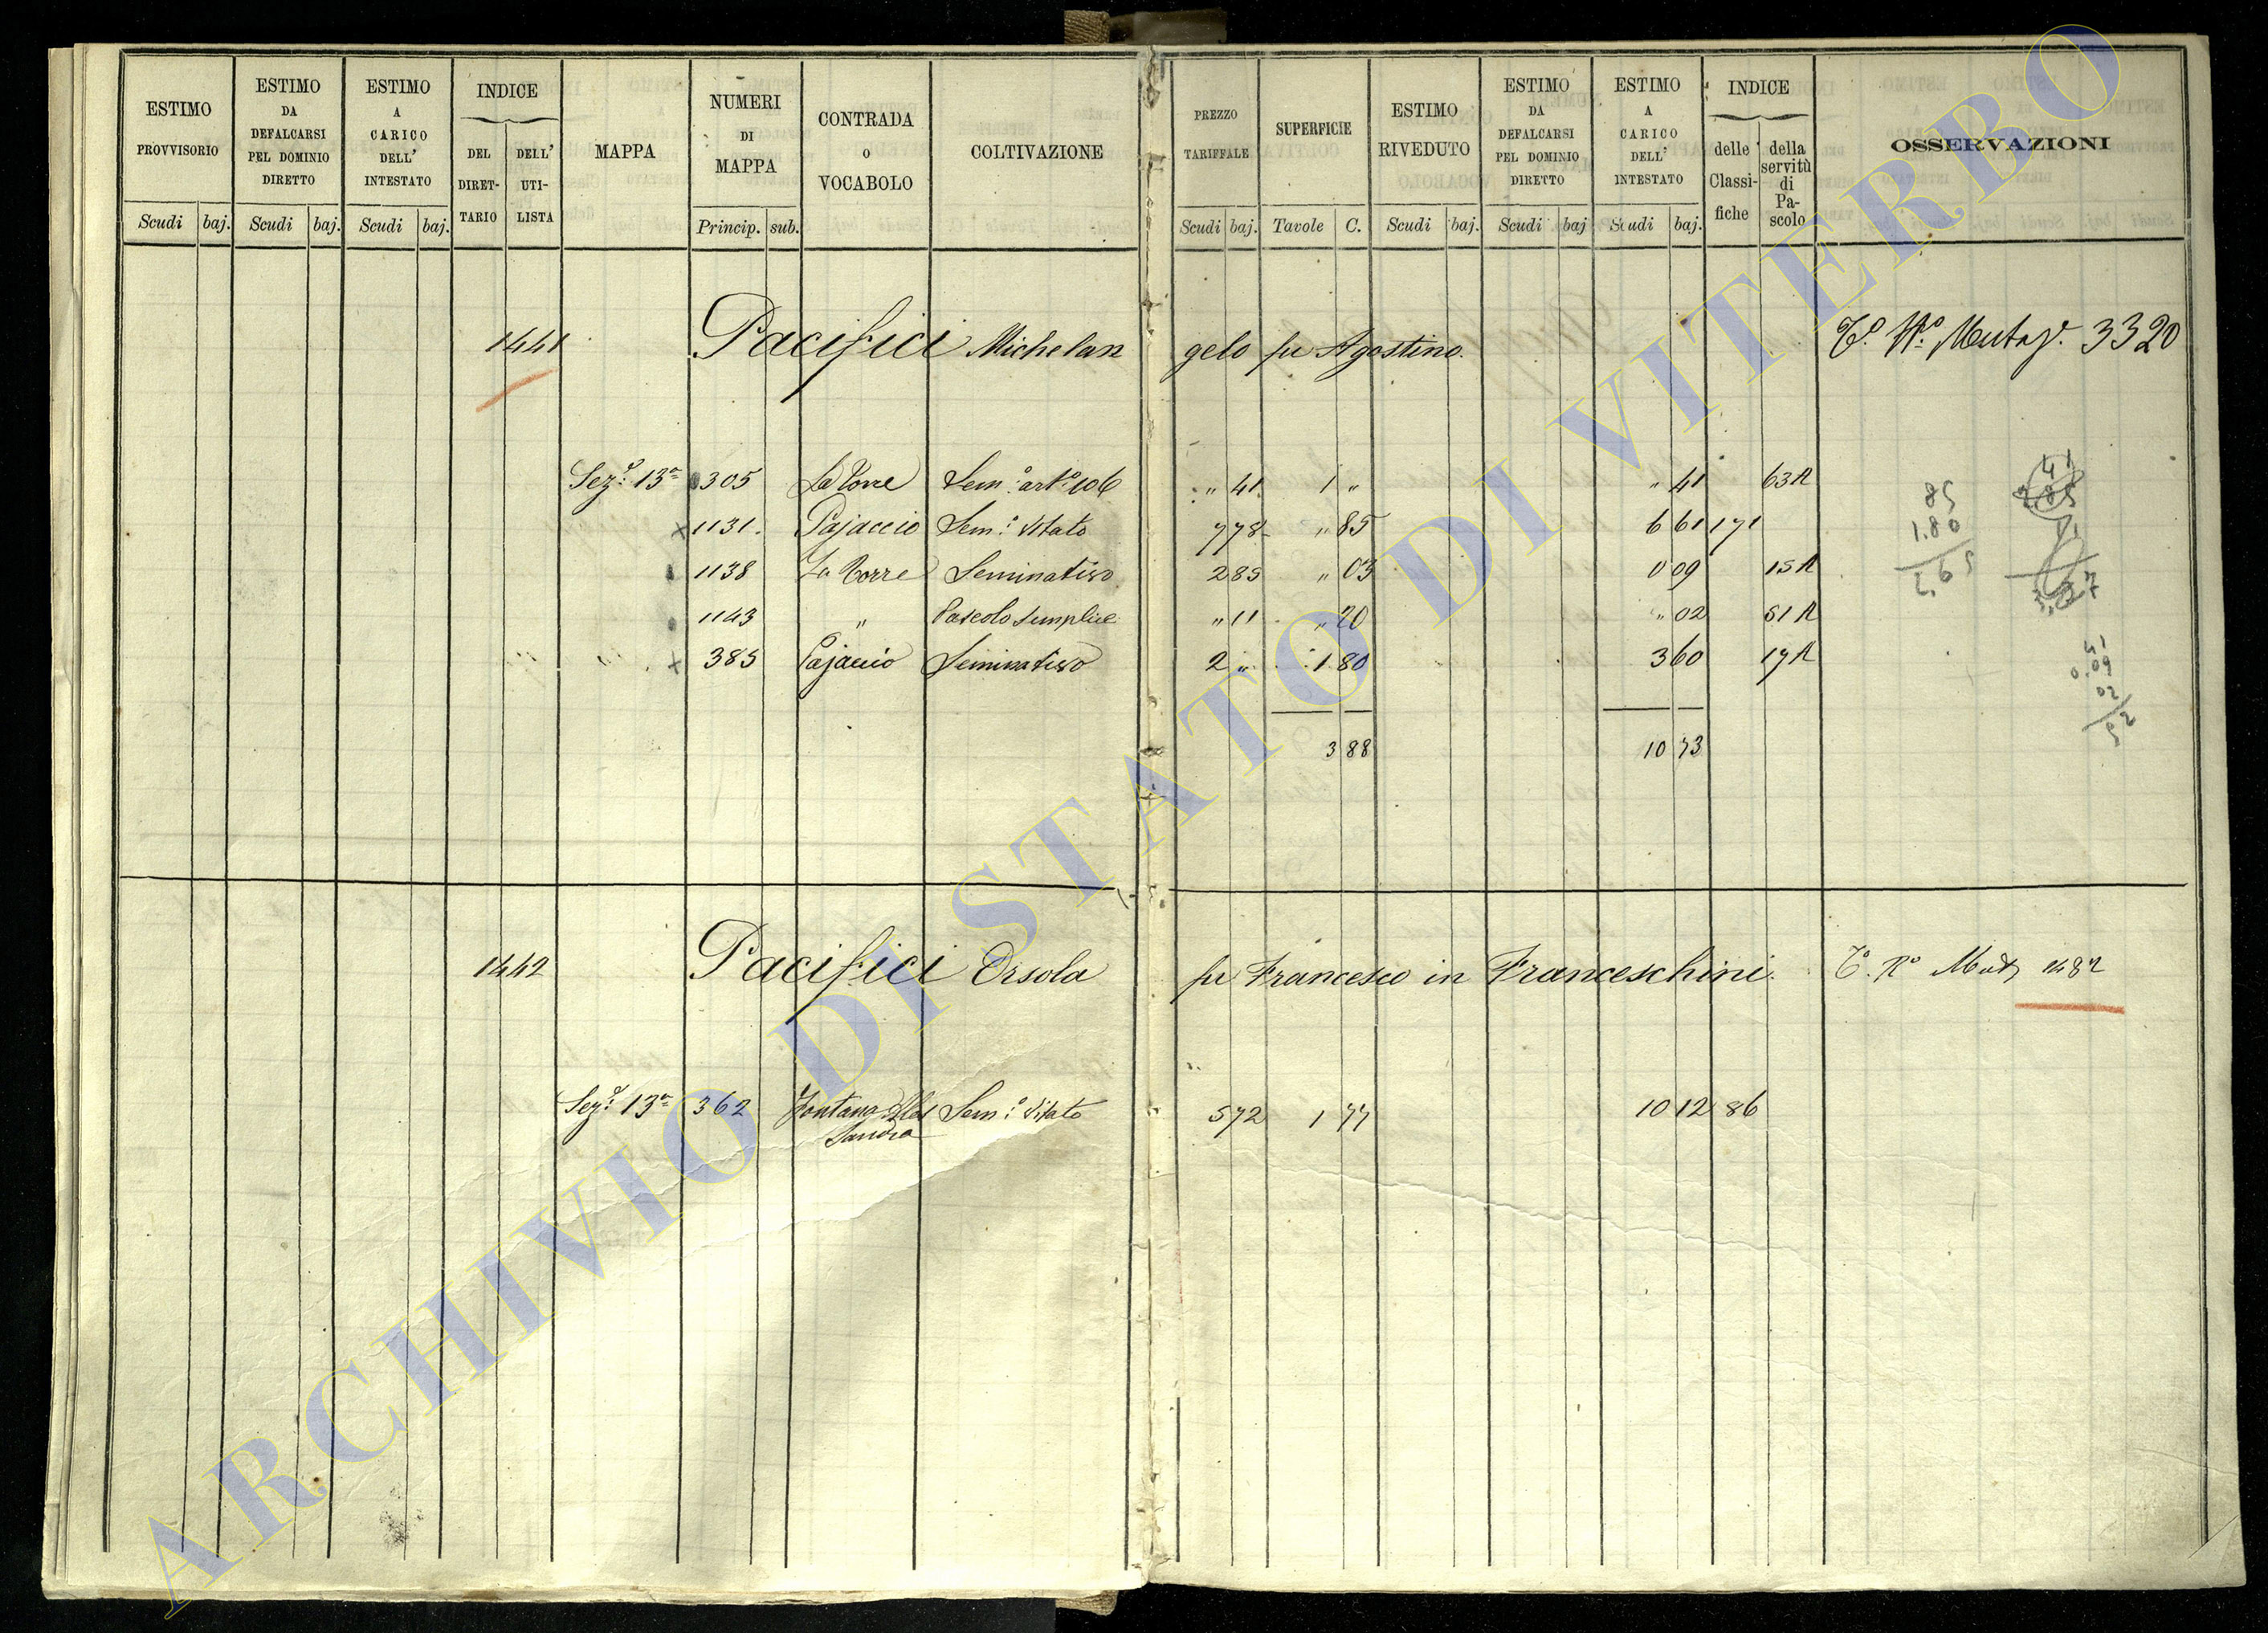 ESTIMO PROVVISORIO
ESTIMO DA DEFALCARSI PEL DOMINIO DIRETTO
ESTIMO A CARICO DELL' INTESTATO
INDICE
DEL DIRET-TARIO
DELL' UTI-LISTA
MAPPA
NUMERI DI MAPPA
CONTRADA O VOCABOLO
COLTIVAZIONE
PREZZO TARIFFALE
SUPERFICIE
ESTIMO RIVEDUTO
ESTIMO DA DEFALCARSI PEL DOMINIO DIRETTO
ESTIMO A CARICO DELL' INTESTATO
INDICE
delle Classi-fiche
della servitù di Pa-scolo
OSSERVAZIONI
Scudi baj. Scudi baj. Scudi baj. Princip. sub. Scudi baj. Tavole C. Scudi baj. Scudi baj Scudi baj.
1441 Pacifici Michelan gelo fu Agostino. 3320
Sez.e 13a 305 La Torre Sem.o art.o 106 " 41 1 " " 41 63 A
x 1131. Pajaccio Sem.o Vitato 7 78 " 85 6 61 171
1138 La Torre Seminativo 2 85 " 03 0 09 15 A
1143 " Pascolo Semplice " 11 " 20 " 02 51 A
x 385 Pajaccio Seminativo 2 " 1 80 3 60 17 A
3 88 10 73
85
1.80
2,65
41
0.09
02
52
1442 Pacifici Orsola fu Francesco in Franceschini.
Sez.e 13a 362 Fontana della Sem.o Vitato 5 72 1 77 10 12 86